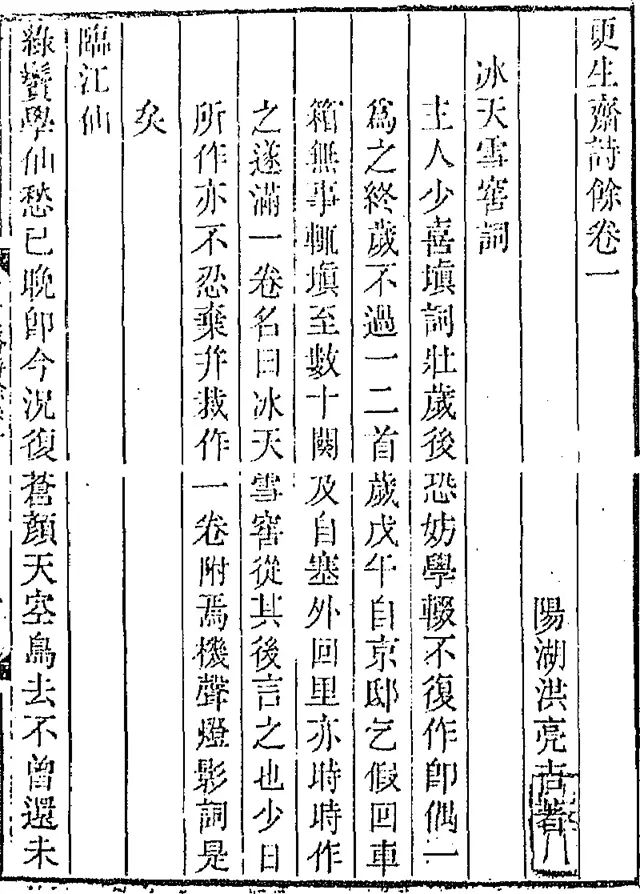 更生齋詩餘卷一
陽湖洪亮吉著
冰天雪窖詞
主人少喜塡詞壯歲後恐妨學輟不復作卽偶一
爲之終歲不過一二首歲戊午自京邸乞假回車
箱無事輒塡至數十闋及自塞外回里亦時時作
之遂滿一卷名曰冰天雪窖從其後言之也少日
所作亦不忍棄幷裁作一卷附焉機聲燈影詞是
矣
臨江仙
綠鬢學仙愁已晚卽今況復蒼顏天空鳥去不曾還未